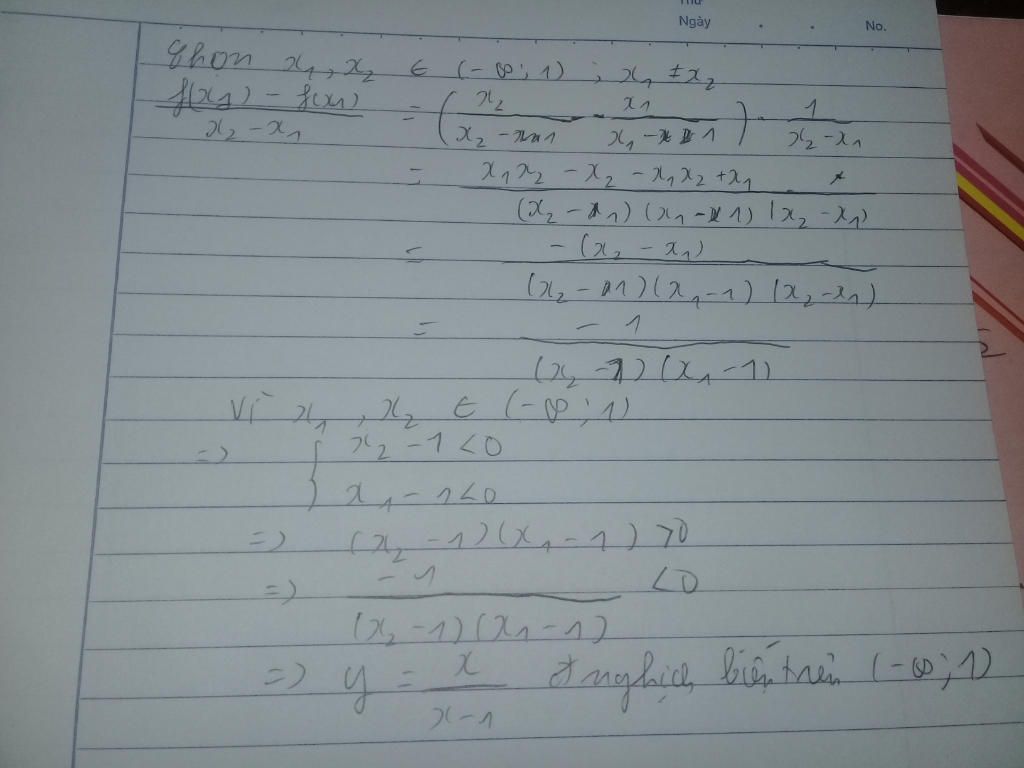 Thứ
Ngày . . No.
Chọn x₁, x₂ ∈ (-∞; 1) ; x₁ ≠ x₂
f(x₂) - f(x₁) / x₂ - x₁ = (x₂ / x₂ - 1 - x₁ / x₁ - 1) · 1 / x₂ - x₁
= x₁x₂ - x₂ - x₁x₂ + x₁ / (x₂ - 1)(x₁ - 1)(x₂ - x₁)
= -(x₂ - x₁) / (x₂ - 1)(x₁ - 1)(x₂ - x₁)
= -1 / (x₂ - 1)(x₁ - 1)
Vì x₁, x₂ ∈ (-∞; 1)
=> { x₂ - 1 < 0
x₁ - 1 < 0
=> (x₂ - 1)(x₁ - 1) > 0
=> -1 / (x₂ - 1)(x₁ - 1) < 0
=> y = x / x - 1 nghịch biến trên (-∞; 1)